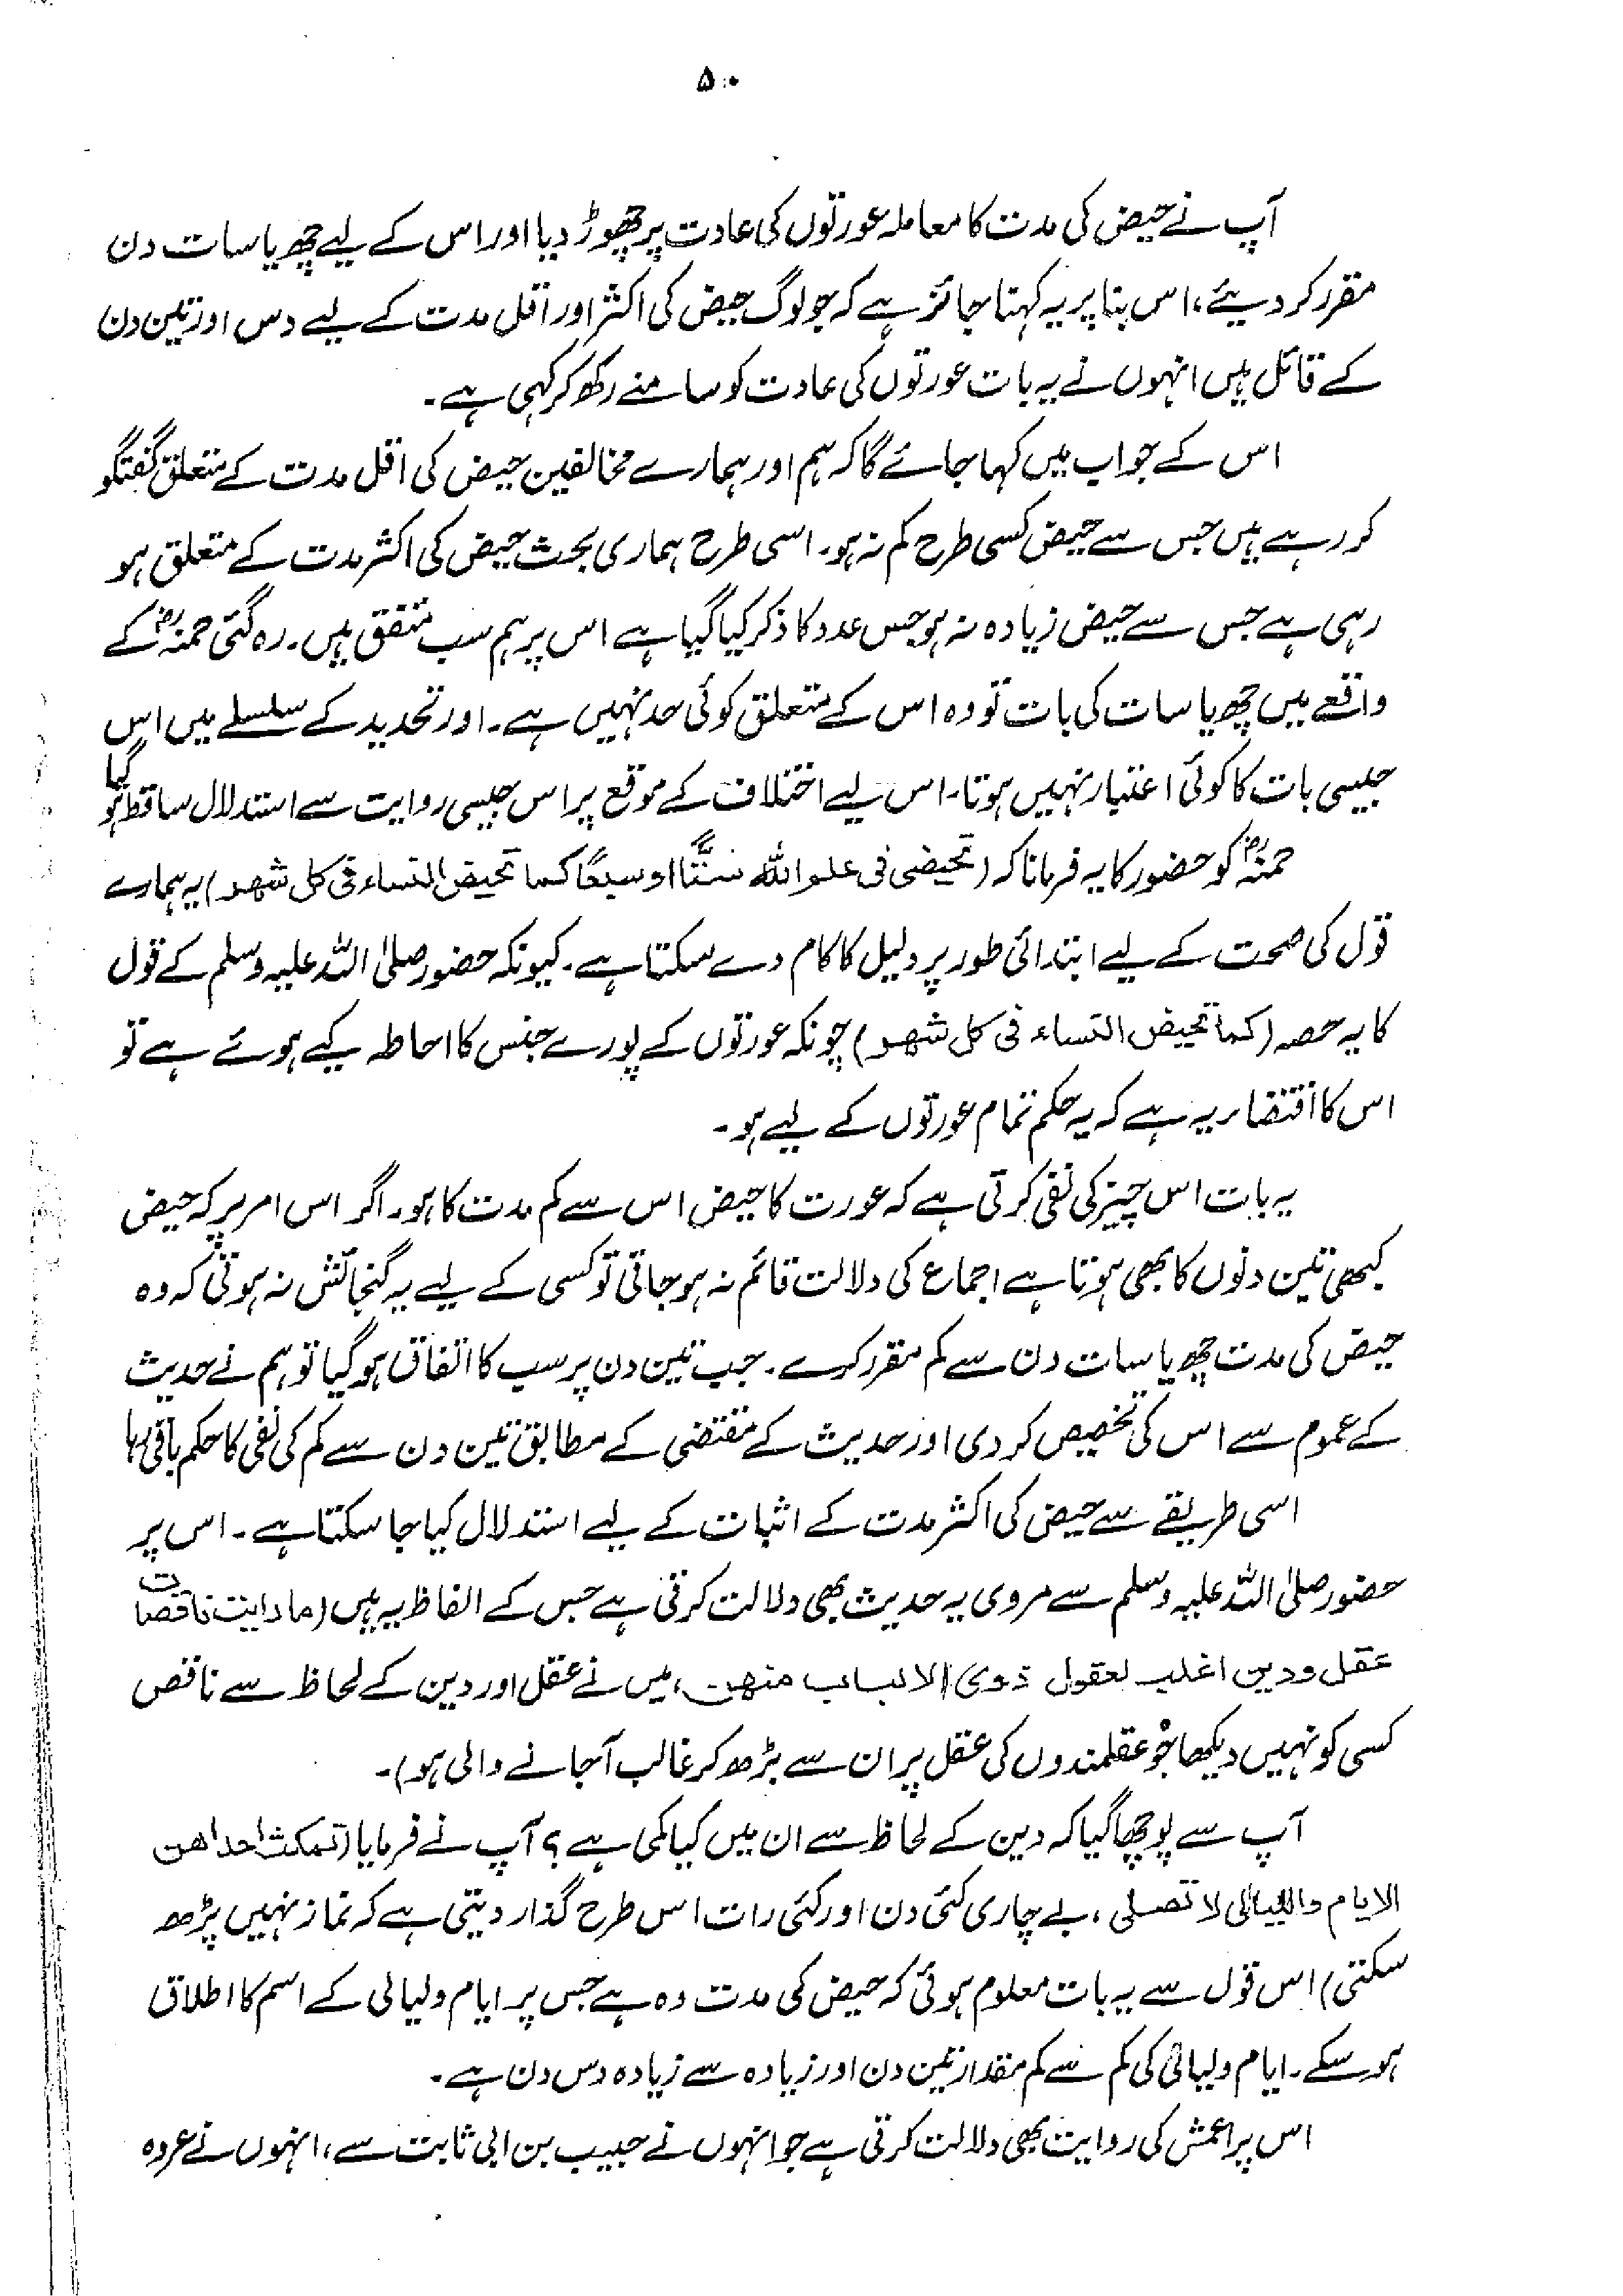 ۵۰
آپ نے حیض کی مدت کا معاملہ عورتوں کی عادت پر چھوڑ دیا اور اس کے لیے چھ یا سات دن
مقرر کر دیئے، اس بنا پر یہ کہنا جائز ہے کہ جو لوگ حیض کی اکثر اور اقل مدت کے لیے دس اور تین دن
کے قائل ہیں انہوں نے یہ بات عورتوں کی عادت کو سامنے رکھ کر کہی ہے۔
اس کے جواب میں کہا جائے گا کہ ہم اور ہمارے مخالفین حیض کی اقل مدت کے متعلق گفتگو
کر رہے ہیں جس سے حیض کسی طرح کم نہ ہو۔ اسی طرح ہماری بحث حیض کی اکثر مدت کے متعلق ہو
رہی ہے جس سے حیض زیادہ نہ ہو جس عدد کا ذکر کیا گیا ہے اس پر ہم سب متفق ہیں۔ رہ گئی حمنہؓ کے
واقعے میں چھ یا سات کی بات تو وہ اس کے متعلق کوئی حد نہیں ہے۔ اور تحدید کے سلسلے میں اس
جیسی بات کا کوئی اعتبار نہیں ہوتا۔ اس لیے اختلاف کے موقع پر اس جیسی روایت سے استدلال ساقط ہو گیا
حمنہؓ کو حضور کا یہ فرمانا کہ (تحیضی فی علم اللہ ستًّا او سبعًا کما تحیض النساء فی کل شھر) یہ ہمارے
قول کی صحت کے لیے ابتدائی طور پر دلیل کا کام دے سکتا ہے۔ کیونکہ حضور صلی اللہ علیہ وسلم کے قول
کا یہ حصہ (کما تحیض النساء فی کل شھر) چونکہ عورتوں کے پورے جنس کا احاطہ کیے ہوئے ہے تو
اس کا اقتضاء یہ ہے کہ یہ حکم تمام عورتوں کے لیے ہو۔
یہ بات اس چیز کی نفی کرتی ہے کہ عورت کا حیض اس سے کم مدت کا ہو۔ اگر اس امر پر کہ حیض
کبھی تین دنوں کا بھی ہوتا ہے اجماع کی دلالت قائم نہ ہو جاتی تو کسی کے لیے یہ گنجائش نہ ہوتی کہ وہ
حیض کی مدت چھ یا سات دن سے کم مقرر کرے۔ جب تین دن پر سب کا اتفاق ہو گیا تو ہم نے حدیث
کے عموم سے اس کی تخصیص کر دی اور حدیث کے مقتضی کے مطابق تین دن سے کم کی نفی کا حکم باقی رہا
اسی طریقے سے حیض کی اکثر مدت کے اثبات کے لیے استدلال کیا جا سکتا ہے۔ اس پر
حضور صلی اللہ علیہ وسلم سے مروی یہ حدیث بھی دلالت کرتی ہے جس کے الفاظ یہ ہیں (ما رایت ناقصات
عقل ودین اغلب لعقول ذوی الالباب منھن، میں نے عقل اور دین کے لحاظ سے ناقص
کسی کو نہیں دیکھا جو عقلمندوں کی عقل پر ان سے بڑھ کر غالب آ جانے والی ہو)۔
آپ سے پوچھا گیا کہ دین کے لحاظ سے ان میں کیا کمی ہے؟ آپ نے فرمایا (تمکث احداھن
الایام واللیالی لا تصلی، بے چاری کئی دن اور کئی رات اس طرح گذار دیتی ہے کہ نماز نہیں پڑھ
سکتی) اس قول سے یہ بات معلوم ہوئی کہ حیض کی مدت وہ ہے جس پر ایام ولیالی کے اسم کا اطلاق
ہو سکے۔ ایام ولیالی کی کم سے کم مقدار تین دن اور زیادہ سے زیادہ دس دن ہے۔
اس پر اعمش کی روایت بھی دلالت کرتی ہے جو انہوں نے حبیب بن ابی ثابت سے، انہوں نے عروہ